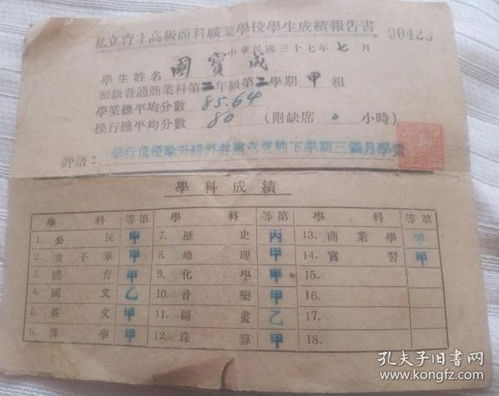 私立青士高級商科職業學校學生成績報告書
中華民國三十七年七月
學生姓名 國寶成
初級普通商業科第二年級第二學期甲組
學業總平均分數 85.64
操行總平均分數 80 (附缺席 0 小時)
評語:
學科成績
學科 等第 學科 等第 學科 等第
1. 公民 甲 7. 歷史 丙 13. 商業學 甲
2. 童子軍 甲 8. 地理 甲 14. 實習 甲
3. 體育 甲 9. 化學 甲 15.
4. 國文 乙 10. 音樂 甲 16.
5. 英文 甲 11. 圖畫 乙 17.
6. 算學 甲 12. 珠算 甲 18.
孔夫子旧书网
www.kongfz.com